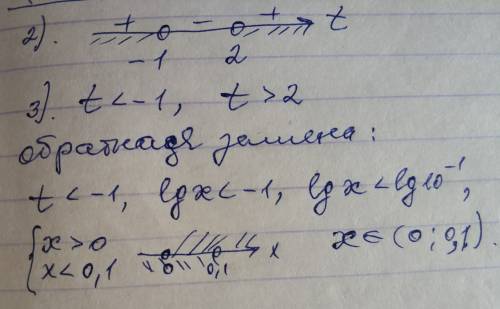 2). + − + t
−1 2
3). t < −1, t > 2
обратная замена:
t < −1, lg x < −1, lg x < lg 10⁻¹,
{ x > 0
x < 0,1 0 0,1 x x ∈ (0; 0,1).